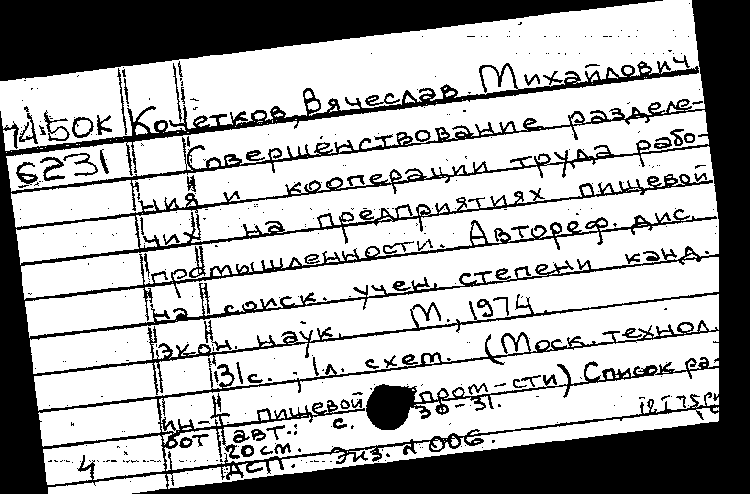 74-50К Кочетков, Вячеслав Михайлович.
6231 Совершенствование разделе-
ния и кооперации труда рабо-
чих на предприятиях пищевой
промышленности. Автореф. дис.
на соиск. учен. степени канд.
экон. наук. М., 1974.
31с., 1л. схем. (Моск. технол.
ин-т пищевой пром-сти) Список ра-
бот авт.: с. 30-31.
20см.
4 ДСП. Экз. N 006.